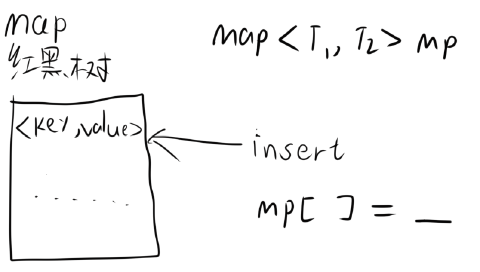 map
红黑树
map < T1, T2 > mp
<key,value>
......
insert
mp[ ] = __